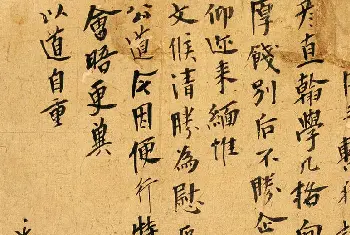 彦直翰學几格向
厚餞別后不勝企
仰近来緬惟
文候清勝為慰
公道文因便行特
會晤更冀
以道自重